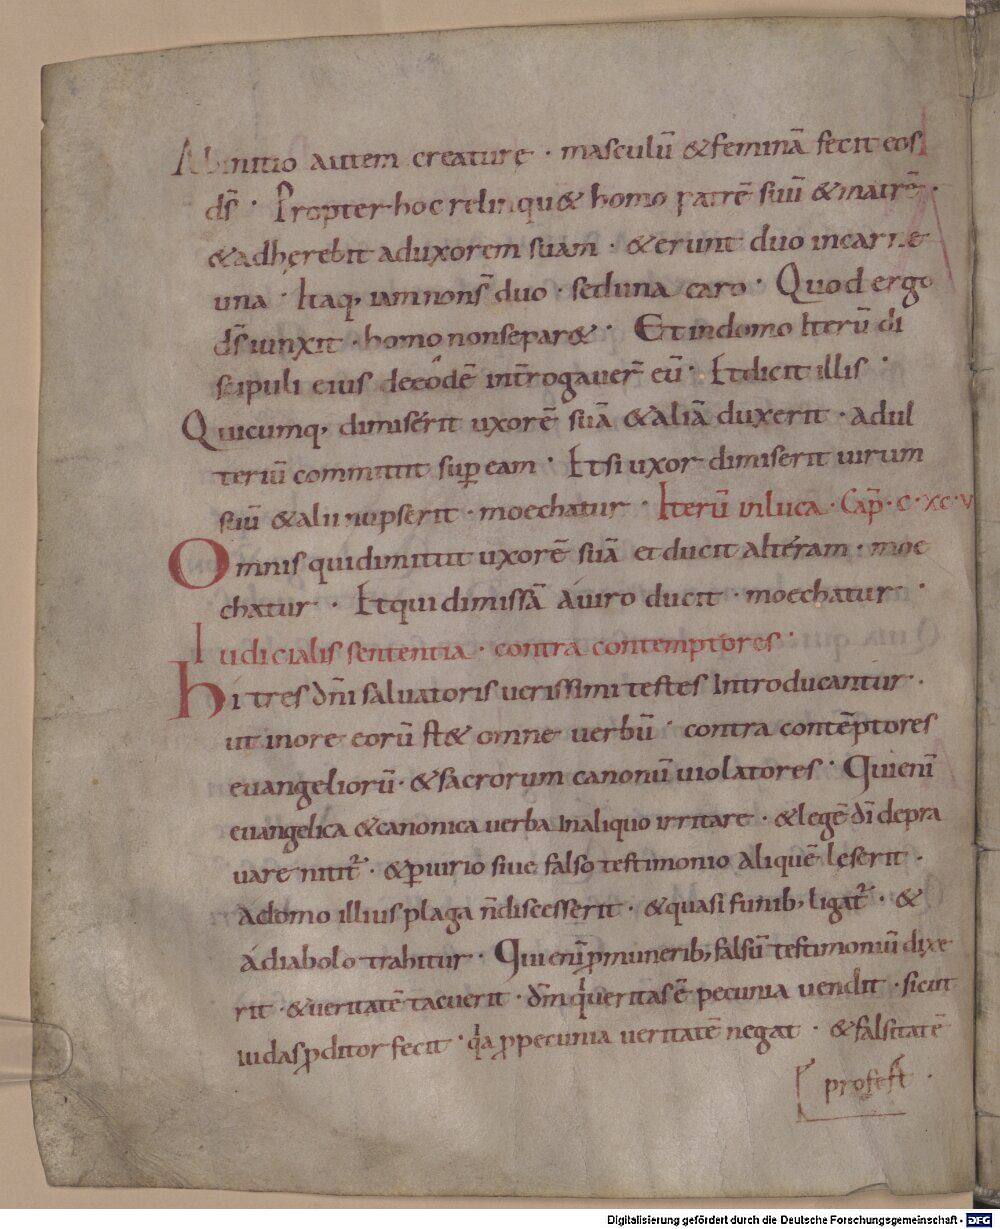 Ab initio autem creaturę · masculū & feminā fecit eos
ds̄ · Propter hoc relinqu& homo patrē suū & matrē ·
& adherebit ad uxorem suam · & erunt duo in carne
una · Itaq, iam non s̄ duo · sed una caro · Quod ergo
ds̄ iunxit · homo non separ& · Et in domo iterū di
scipuli eius de eodē int̄rogaver̄ eū · Et dicit illis ·
Quicumq, dimiserit uxorē suā & aliā duxerit · adul
teriū committit sup eam · Et si uxor dimiserit uirum
suū & alii nupserit · moechatur · Iterū in luca · Cap̄ · c · xc · v
Omnis qui dimittit uxorē suā et ducit alteram · moe
chatur · Et qui dimissā a uiro ducit · moechatur ·
Iudicialis sententia · contra contemptores ·
hi tres dn̄i saluatoris uerissimi testes Introducantur ·
ut in ore eorū st& omne uerbū · contra contēptores
euangeliorū · & sacrorum canonū uiolatores · Qui enī
euangelica & canonica uerba In aliquo irritare · & legē dī depra
uare nitit̄ · & puirio siue falso testimonio aliquē leserit ·
A domo illius plaga n̄ discesserit · & quasi funib, ligat̄ · &
a diabolo trahitur · Qui enī p munerib, falsū testimoniū dixe
rit · & ueritatē tacuerit · dm̄ qi ueritas ē pecunia uendit · sicut
iudas pditor fecit · qa p pecunia ueritatē negat · & falsitatē
profest ·
Digitalisierung gefördert durch die Deutsche Forschungsgemeinschaft - DFG